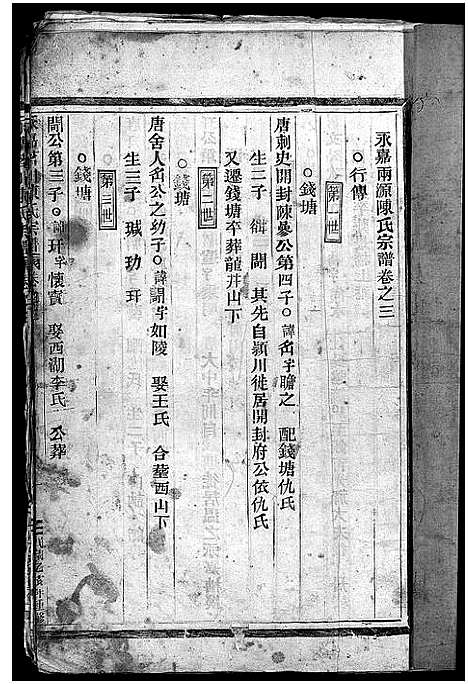 永嘉兩源陳氏宗譜卷之三
○行傳
第一世
○錢塘
唐刺史開封陳參公第四子○諱 字瞻之 配錢塘仇氏
生二子 闢 其先自潁川徙居開封府公依仇氏
又遷錢塘卒葬龍井山下
第二世
○錢塘
唐舍人 公之幼子○諱闢字如陵 娶王氏 合葬西山下
生三子 珹 玏 玕
第三世
○錢塘
闢公第三子○諱玕字懷寶 娶西湖李氏 公葬